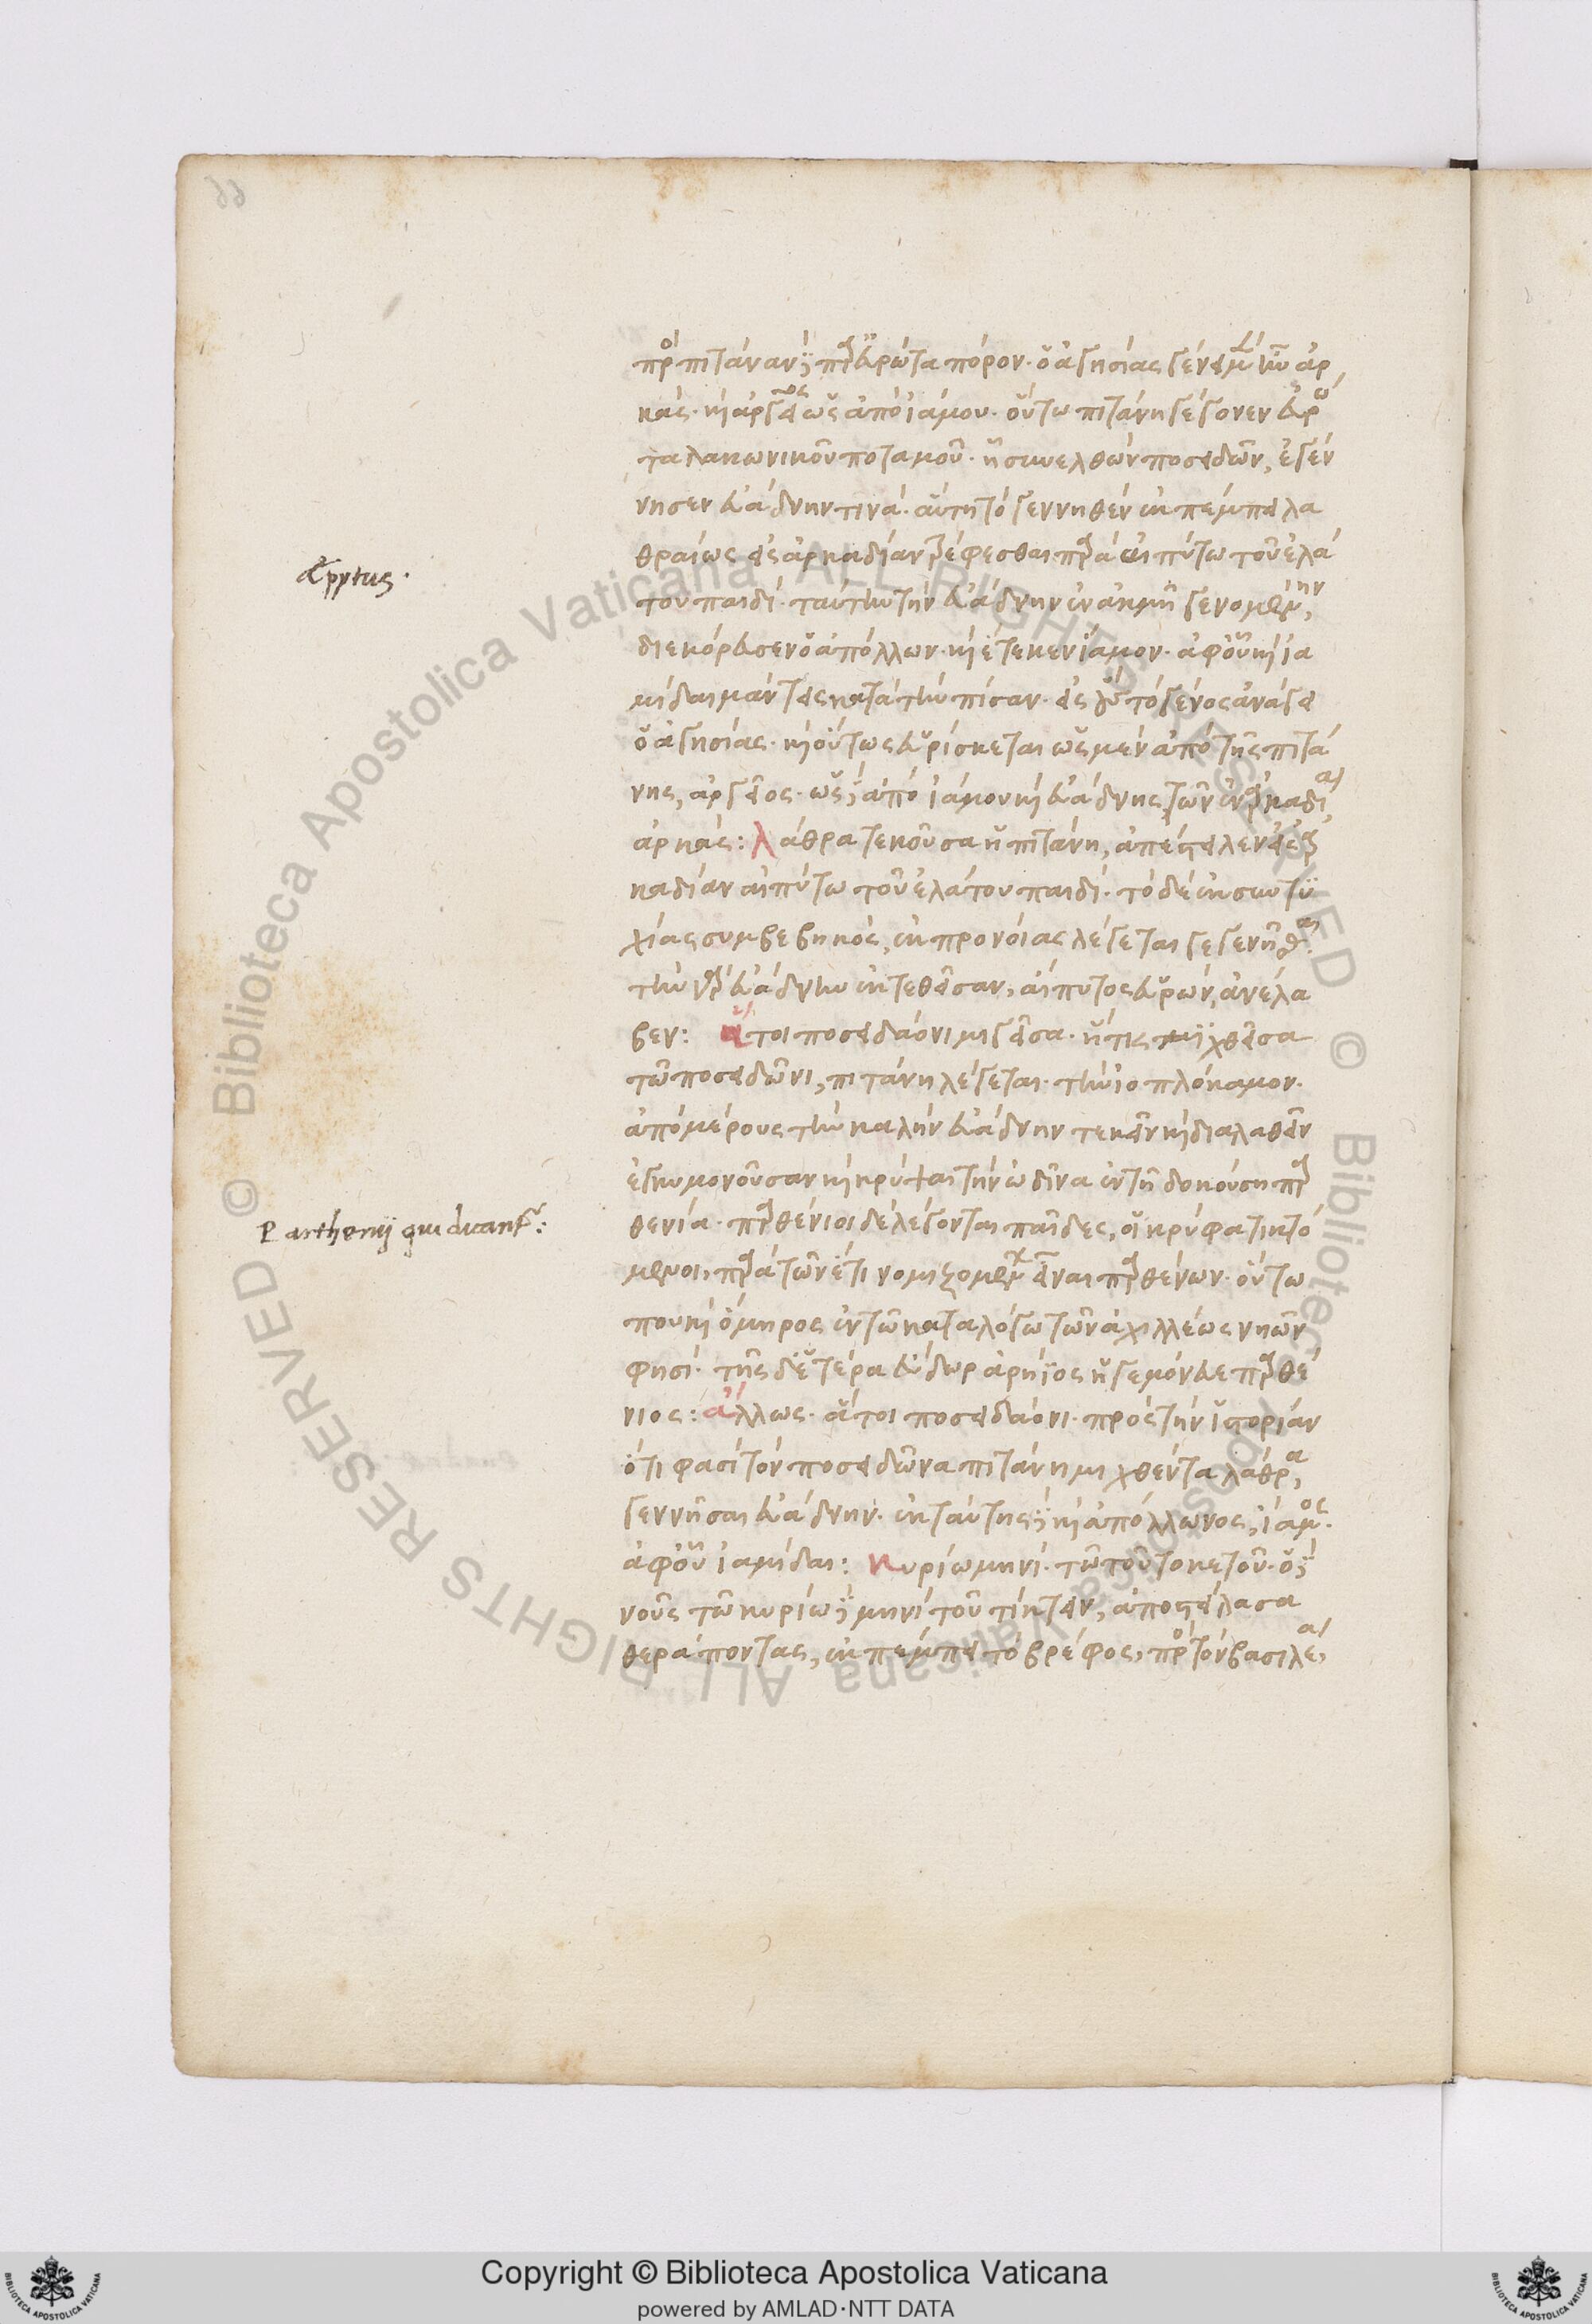 πρὸς πιτάναν δὲ παρ' εὐρώτα πόρον· ὁ ἀγησίας γένει μὲν ἦν ἀρ
κάς· καὶ ἀργεῖος ὡς ἀπὸ ἰάμου· οὕτω πιτάνη γέγονεν εὐρώ
τα λακωνικοῦ ποταμοῦ· ᾗ συνελθὼν ποσειδῶν, ἐγέν
νησεν εὐάδνην τινά· αὕτη τὸ γεννηθὲν ἐκπέμπει λα
θραίως εἰς ἀρκαδίαν τρέφεσθαι παρὰ αἰπύτω τοῦ ἐλά
του παιδί· ταύτην τὴν εὐάδνην ἐν ἀκμῇ γενομένην,
διεκόρευσεν ὁ ἀπόλλων· καὶ ἔτεκεν ἴαμον· ἀφ' οὗ καὶ ἰα
μίδαι μάντεις κατὰ τὴν πίσαν· εἰς τοῦτο τὸ γένος ἀνάγει
ὁ ἀγησίας· καὶ οὕτως εὑρίσκεται ὡς μὲν ἀπὸ τῆς πιτά
νης, ἀργεῖος· ὡς δὲ ἀπὸ ἰάμου καὶ εὐάδνης τῶν ἐν ἀρκαδία,
ἀρκάς: λάθρα τεκοῦσα ἡ πιτάνη, ἀπέστειλεν εἰς ἀρ
καδίαν αἰπύτω τοῦ ἐλάτου παιδί· τὸ δὲ ἐκ συντυ
χίας συμβεβηκός, ἐκ προνοίας λέγεται γεγενῆσθαι·
τὴν γὰρ εὐάδνην ἐκτεθεῖσαν, αἴπυτος εὑρών, ἀνέλα
βεν: ἅ τοι ποσειδάονι μιγεῖσα· ἥτις μιχθεῖσα
τῶ ποσειδῶνι, πιτάνη λέγεται· τὴν ἰοπλόκαμον·
ἀπὸ μέρους τὴν καλὴν εὐάδνην τεκεῖν καὶ διαλαθεῖν
ἐγκυμονοῦσαν καὶ κρύψαι τὴν ὠδῖνα ἐν τῇ δοκούσῃ παρ
θενία· παρθένιοι δὲ λέγονται παῖδες, οἱ κρύφα τικτό
μενοι, παρὰ τῶν ἔτι νομιζομένων εἶναι παρθένων· οὕτω
που καὶ ὅμηρος ἐν τῶ καταλόγω τῶν ἀχιλλέως νηῶν
φησί· τῆς δ' ἑτέρα εὔδωρ ἀρήϊος ἡγεμόνευε παρθέ
νιος: ἄλλως· ἅ τοι ποσειδάονι· πρὸς τὴν ἱστορίαν
ὅτι φασὶ τὸν ποσειδῶνα πιτάνη μιχθέντα λάθρα,
γεννῆσαι εὐάδνην· ἐκ ταύτης δὲ καὶ ἀπόλλωνος, ἴαμος·
ἀφ' οὗ ἰαμίδαι: κυρίω μηνί· τῶ τοῦ τοκετοῦ· ὁ δὲ
νοῦς τῶ κυρίω δὲ μηνὶ τοῦ τίκτειν, ἀποστείλασα
θεράποντας, ἐκπέμπει τὸ βρέφος, πρὸς τὸν βασιλέα,
Æpytus.
Parthenij qui dicantur:
Copyright © Biblioteca Apostolica Vaticana
powered by AMLAD·NTT DATA